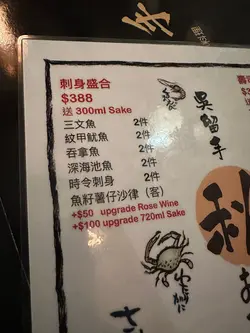 刺身盛合
$388
送 300ml Sake
三文魚 2件
紋甲魷魚 2件
吞拿魚 2件
深海池魚 2件
時令刺身 2件
魚籽薯仔沙律（客）
+$50 upgrade Rose Wine
+$100 upgrade 720ml Sake
吳留手